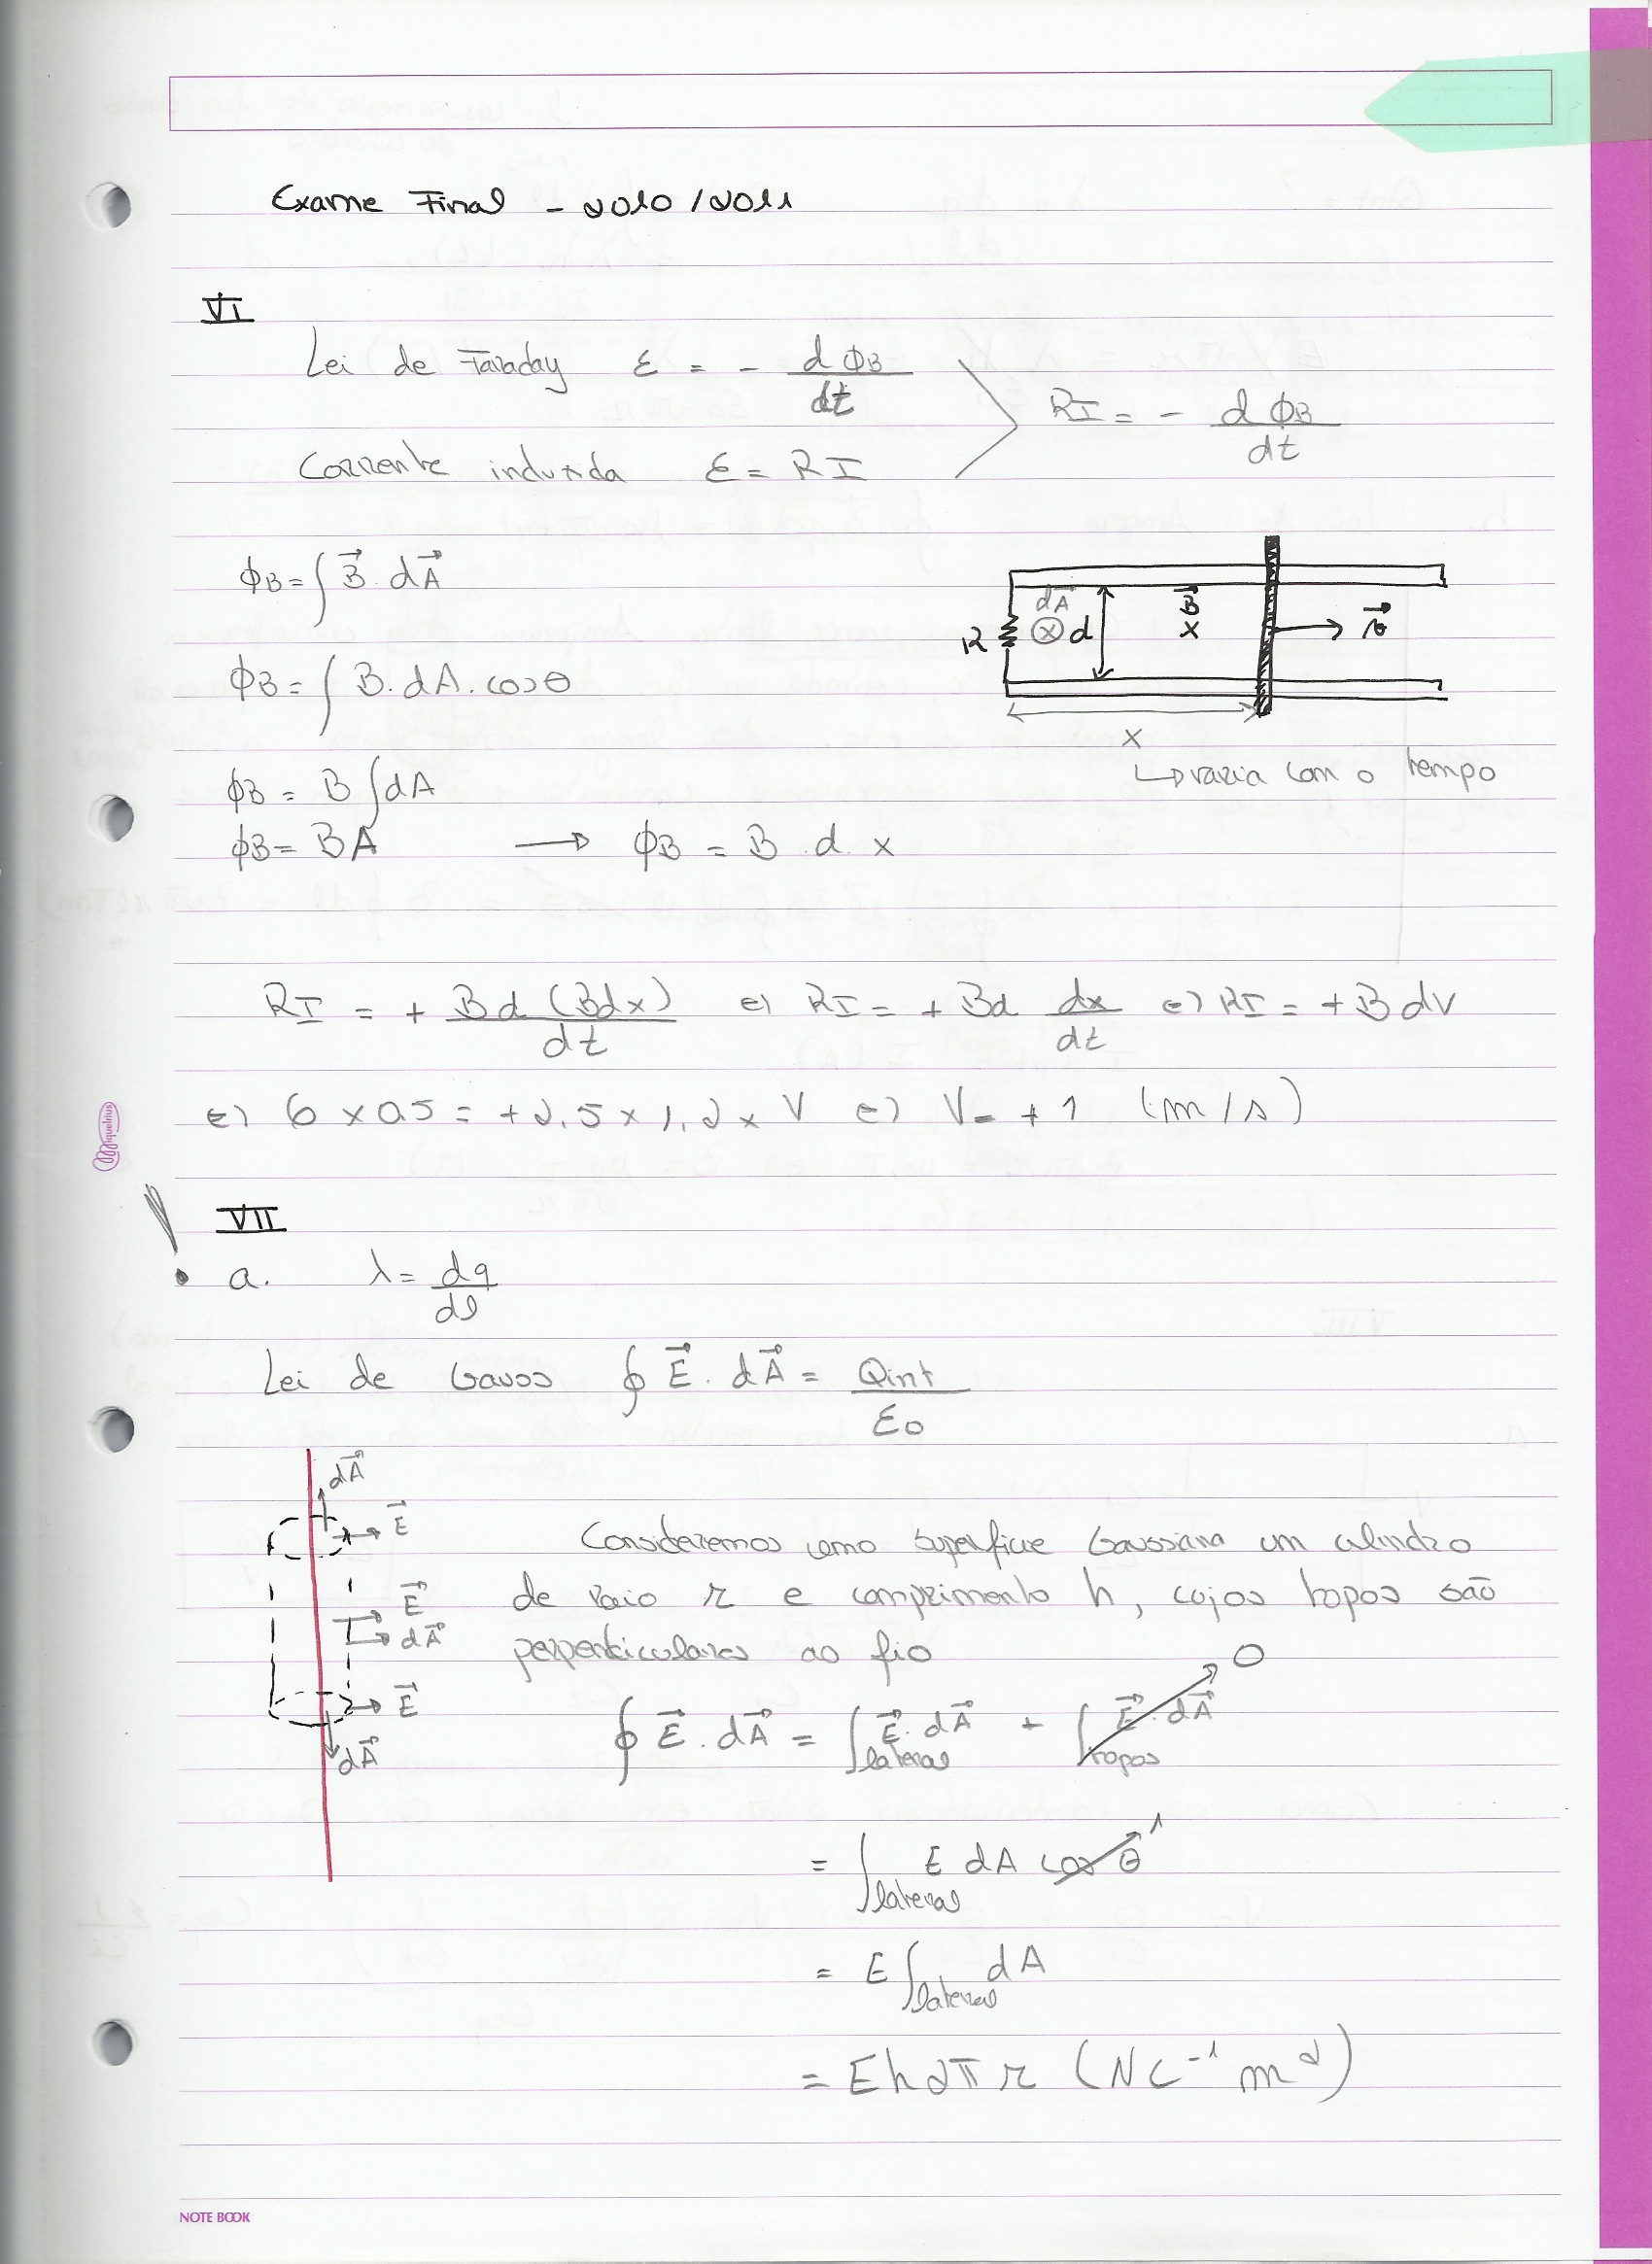 Exame Final - 2010/2011
VI
Lei de Faraday ε = - dΦB/dt
RI = - dΦB/dt
Corrente induzida ε = RI
ΦB = ∫ B⃗ . dA⃗
ΦB = ∫ B . dA . cos θ
ΦB = B ∫ dA
ΦB = BA → ΦB = B . d . x
R
dA⃗
d
B⃗
x
v⃗
x
↳ varia com o tempo
RI = + Bd (Bdx)/dt <=> RI = + Bd dx/dt <=> RI = + B d v
<=> 6 x 0.5 = + 2.5 x 1.2 x V <=> V = + 1 (m/s)
miquelrius
! VII
a. λ = dq/dl
Lei de Gauss ∮ E⃗ . dA⃗ = Qint/ε0
dA⃗
E⃗
E⃗
dA⃗
E⃗
dA⃗
Consideremos como superficie Gaussiana um cilindro
de raio r e comprimento h, cujos topos são
perpendiculares ao fio
∮ E⃗ . dA⃗ = ∫lateral E⃗ . dA⃗ + ∫topos E⃗ . dA⃗ 0
= ∫lateral E dA cos θ 1
= E ∫lateral dA
= E h 2π r (N C⁻¹ m²)
NOTE BOOK